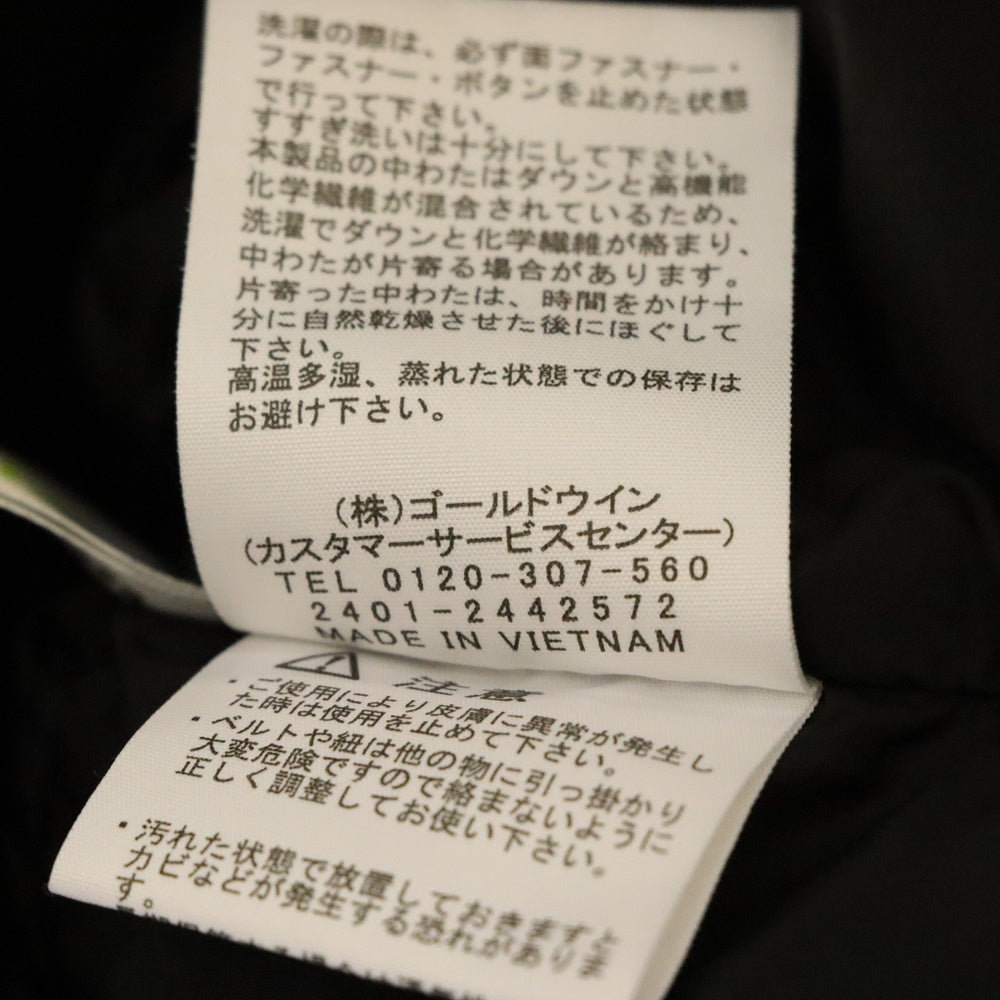 洗濯の際は、必ず面ファスナー・
ファスナー・ボタンを止めた状態
で行って下さい。
すすぎ洗いは十分にして下さい。
本製品の中わたはダウンと高機能
化学繊維が混合されているため、
洗濯でダウンと化学繊維が絡まり、
中わたが片寄る場合があります。
片寄った中わたは、時間をかけ十
分に自然乾燥させた後にほぐして
下さい。
高温多湿、蒸れた状態での保存は
お避け下さい。
(株)ゴールドウイン
(カスタマーサービスセンター)
TEL 0120-307-560
2401-2442572
MADE IN VIETNAM
注意
・ご使用により皮膚に異常が発生し
た時は使用を止めて下さい。
・ベルトや紐は他の物に引っ掛かり
大変危険ですので絡まないように
正しく調整してお使い下さい。
・汚れた状態で放置しておきますと
カビなどが発生する恐れがありま
す。